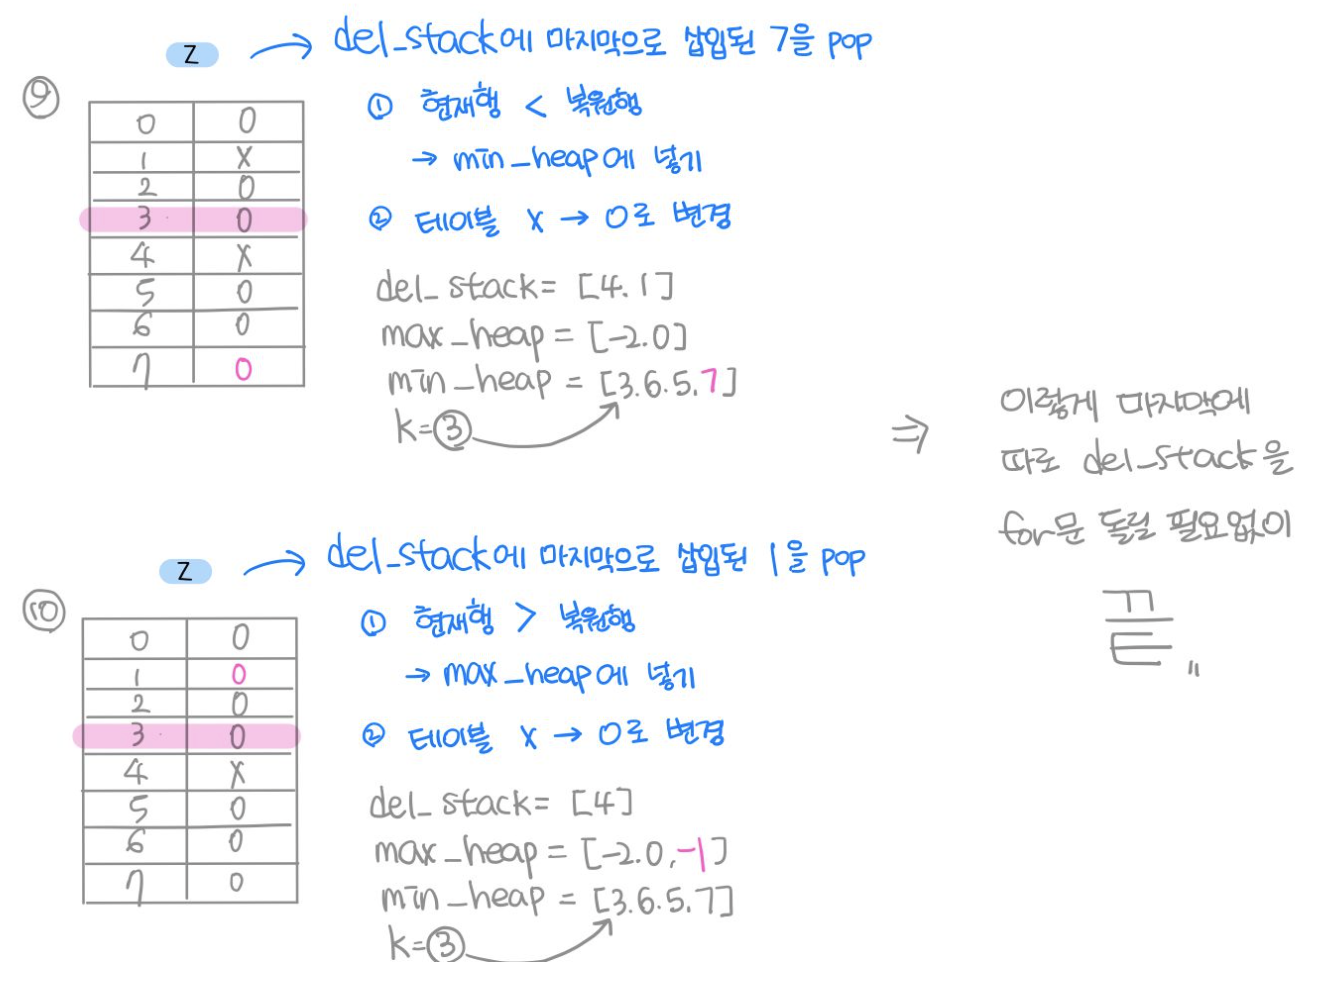 Z → del_stack에 마지막으로 삽입된 7을 pop
⑨
0 0
1 X
2 0
3 0
4 X
5 0
6 0
7 0
① 현재행 < 복원행
→ min_heap에 넣기
② 테이블 X → 0로 변경
del_stack= [4.1]
max_heap = [-2.0]
min_heap = [3.6.5.7]
k=③
⇒ 이렇게 마지막에
따로 del_stack을
for문 돌릴 필요없이
끝 〃
Z → del_stack에 마지막으로 삽입된 1을 pop
⑩
0 0
1 0
2 0
3 0
4 X
5 0
6 0
7 0
① 현재행 > 복원행
→ max_heap에 넣기
② 테이블 X → 0로 변경
del_stack= [4]
max_heap = [-2.0,-1]
min_heap = [3.6.5.7]
k=③